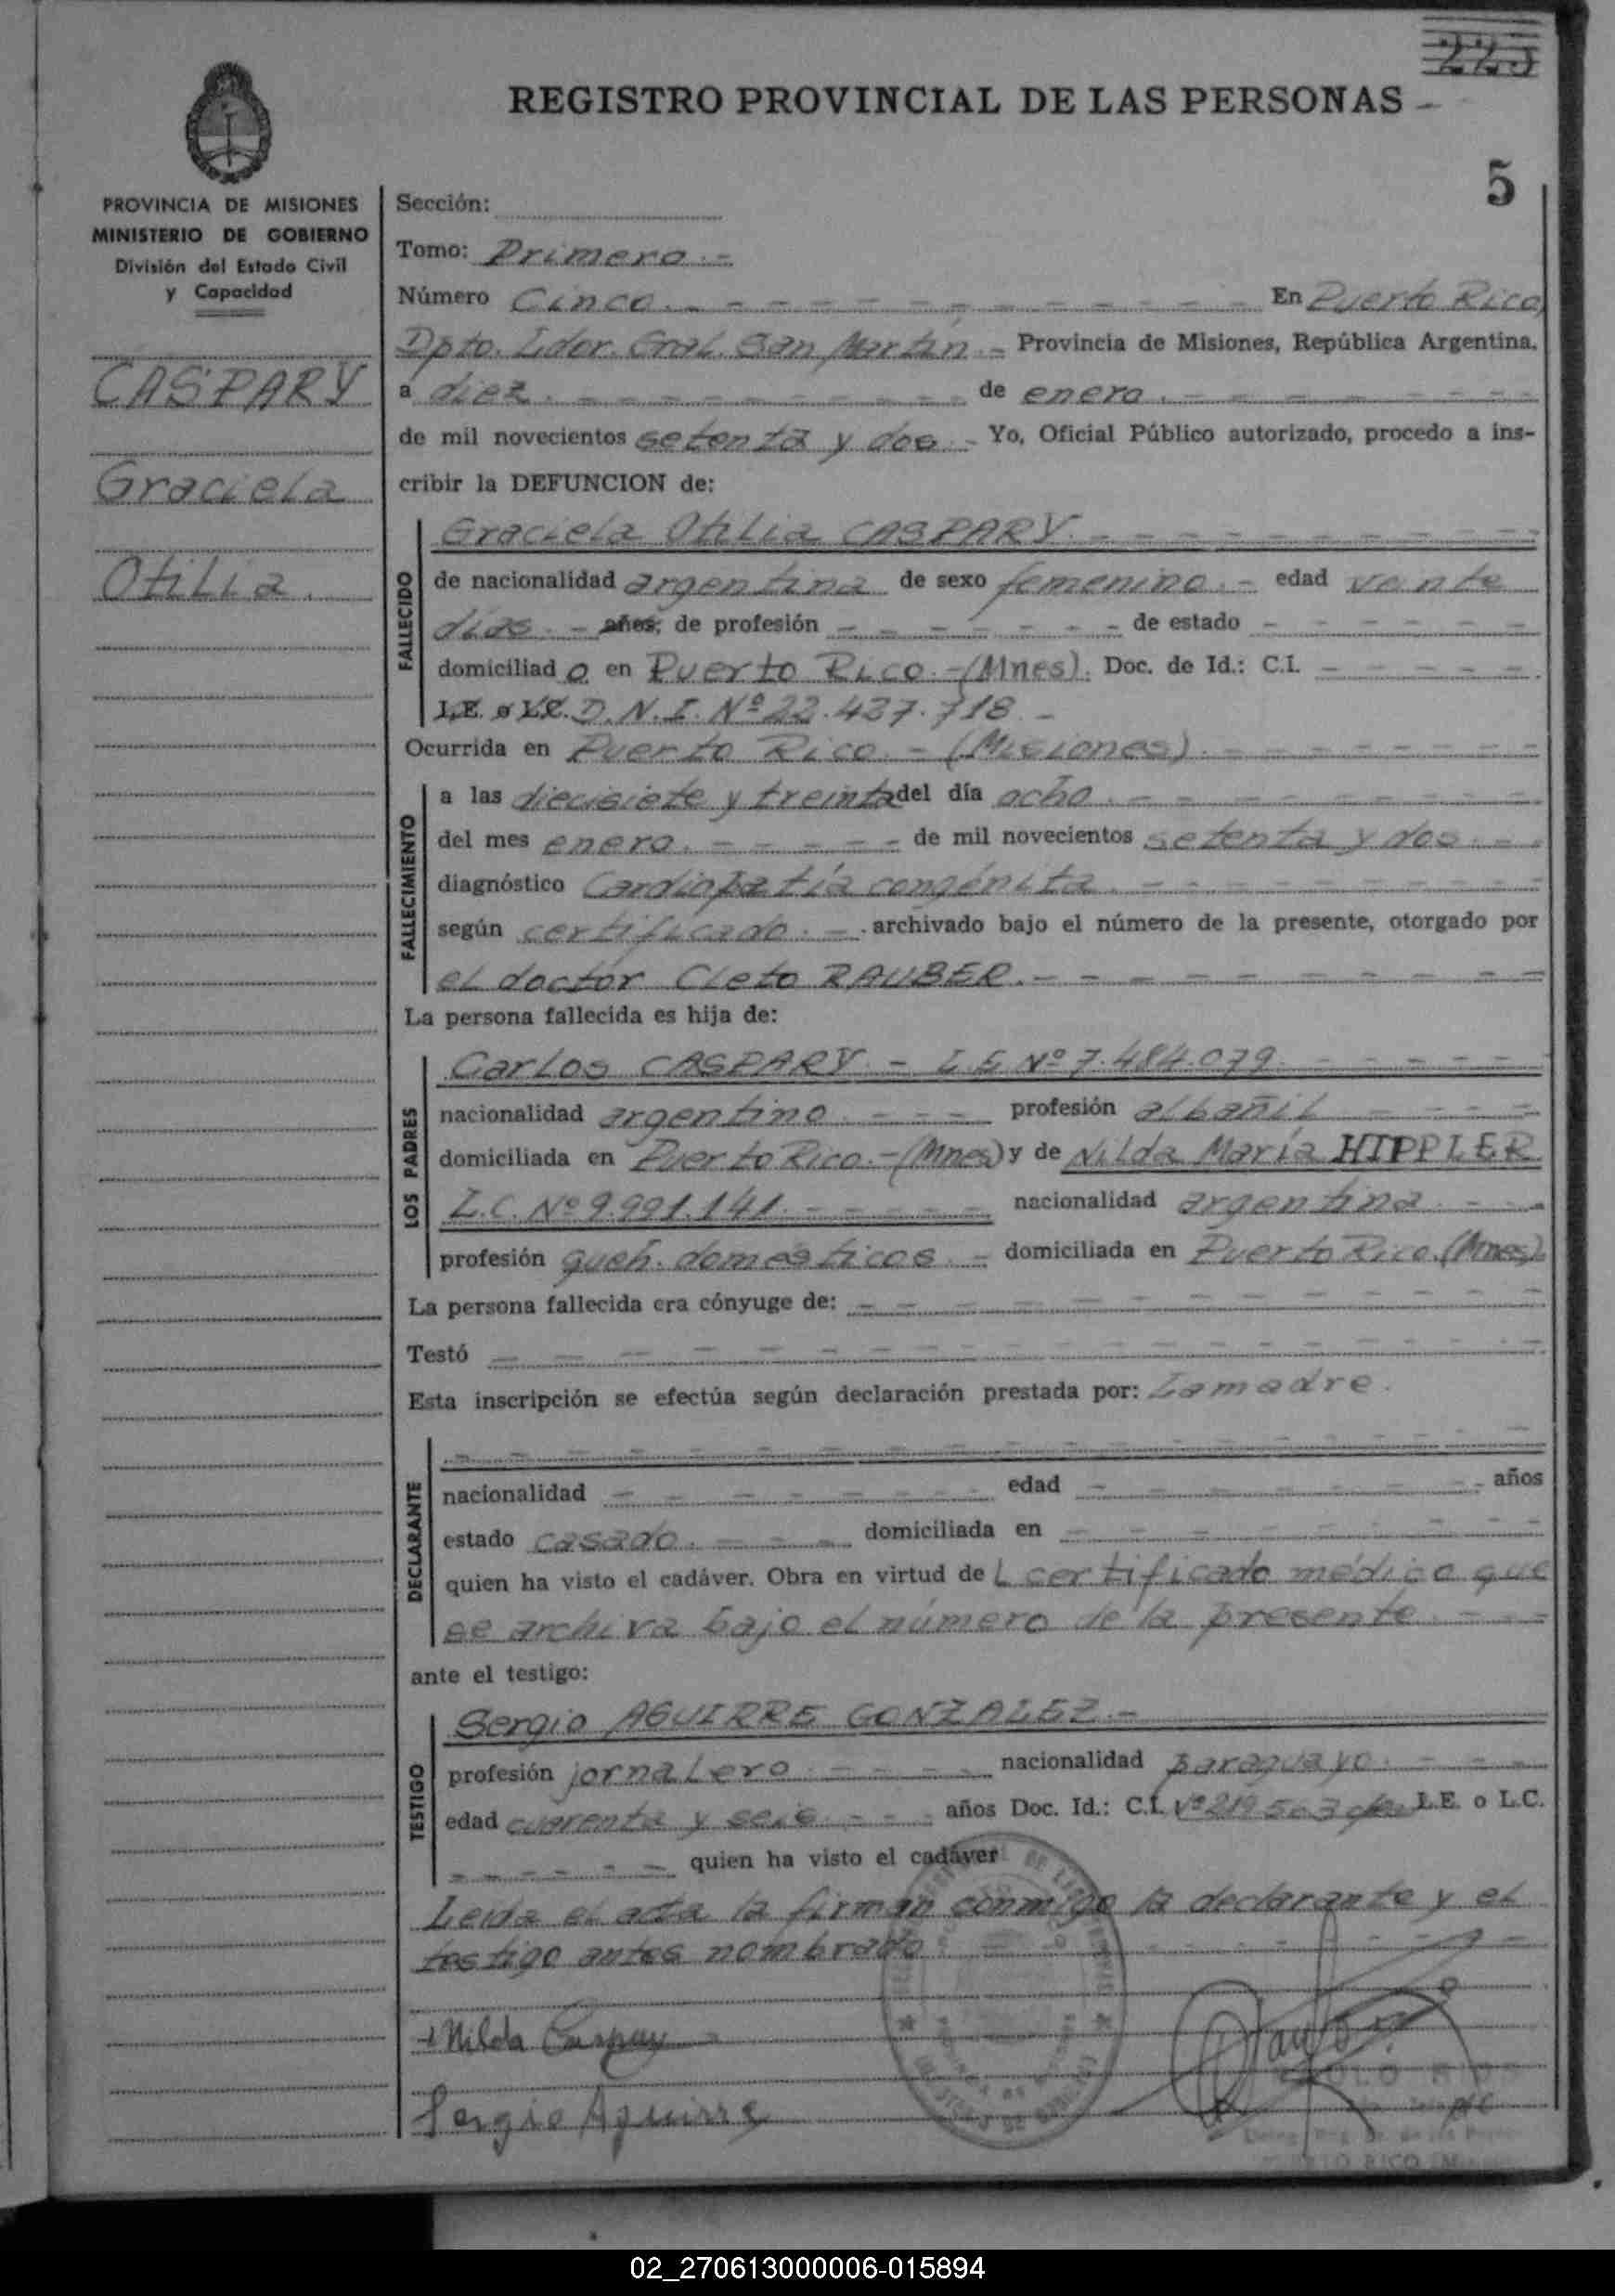 223
REGISTRO PROVINCIAL DE LAS PERSONAS
5
PROVINCIA DE MISIONES
MINISTERIO DE GOBIERNO
División del Estado Civil
y Capacidad
CASPARY
Graciela
Otilia.
Sección:
Tomo: Primero.-
Número Cinco. En Puerto Rico,
Dpto. Lder. Gral. San Martín.- Provincia de Misiones, República Argentina,
a diez. de enero.
de mil novecientos setenta y dos.- Yo, Oficial Público autorizado, procedo a ins-
cribir la DEFUNCION de:
FALLECIDO
Graciela Otilia CASPARY.
de nacionalidad argentina de sexo femenino.- edad veinte
días.- años; de profesión de estado
domiciliad o en Puerto Rico.-(Mnes). Doc. de Id.: C.I.
L.E. o L.C. D.N.I. Nº 22.437.718.-
Ocurrida en Puerto Rico.-(Misiones).
FALLECIMIENTO
a las diecisiete y treinta del día ocho.
del mes enero. de mil novecientos setenta y dos.
diagnóstico Cardiopatía congénita.
según certificado.- archivado bajo el número de la presente, otorgado por
el doctor Cleto RAUBER.
La persona fallecida es hija de:
LOS PADRES
Carlos CASPARY.- L.E Nº 7.484.079.
nacionalidad argentino. profesión albañil
domiciliada en Puerto Rico.-(Mnes) y de Nilda María HIPPLER
L.C. Nº 9.991.141. nacionalidad argentina.
profesión queh. domésticos.- domiciliada en Puerto Rico.(Mnes).
La persona fallecida era cónyuge de:
Testó
Esta inscripción se efectúa según declaración prestada por: La madre.
DECLARANTE
nacionalidad edad años
estado casado. domiciliada en
quien ha visto el cadáver. Obra en virtud de l certificado médico que
se archiva bajo el número de la presente.
ante el testigo:
TESTIGO
Sergio AGUIRRE GONZALEZ.-
profesión jornalero. nacionalidad paraguayo.
edad cuarenta y seis. años Doc. Id.: C.I. Nº 219.563 L.E. o L.C.
quien ha visto el cadáver
Leída el acta la firman conmigo la declarante y el
testigo antes nombrado.
Nilda Caspary
Sergio Aguirre
02_270613000006-015894